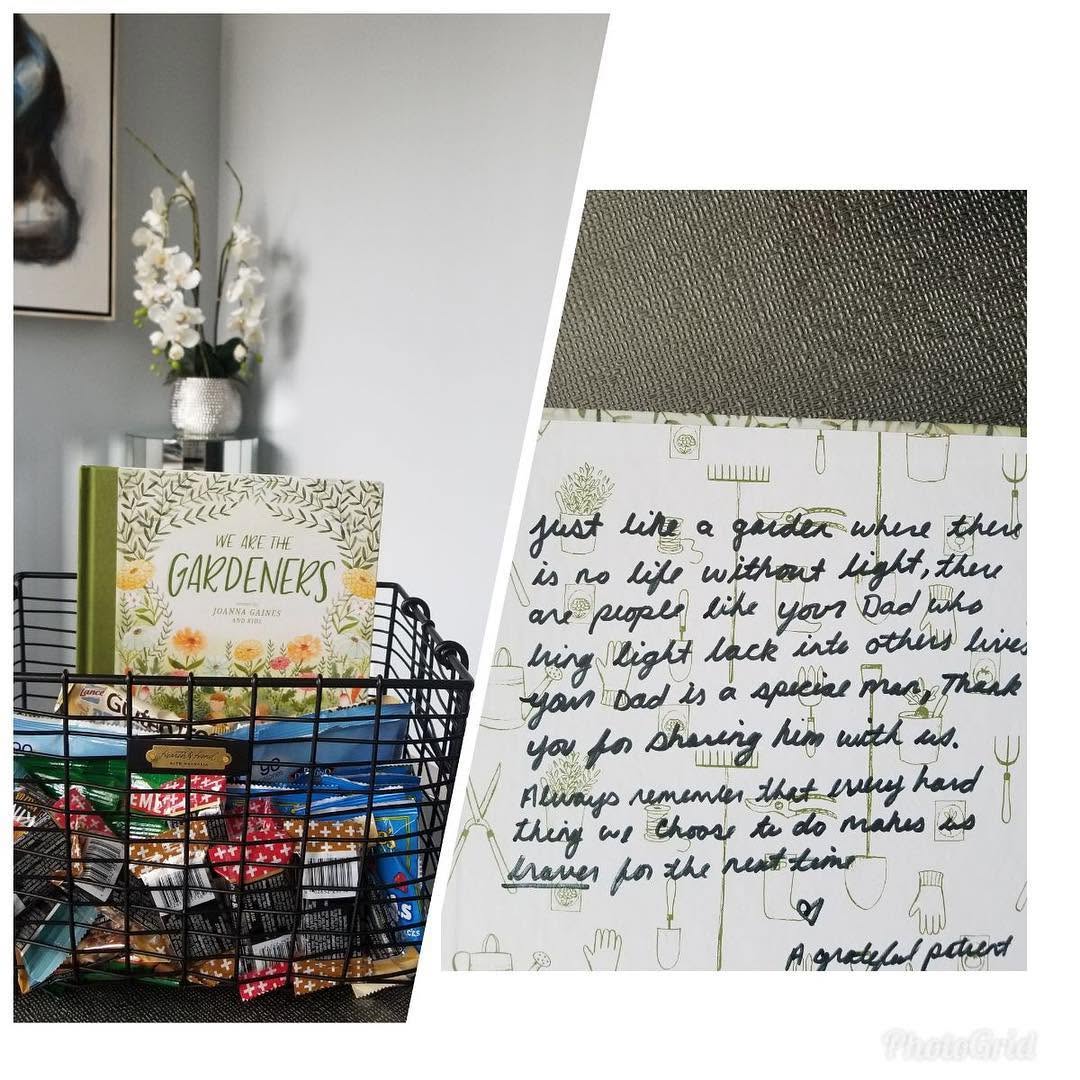 WE ARE THE
GARDENERS
JOANNA GAINES
AND KIDS
Lance
go
Just like a garden where there
is no life without light, there
are people like your Dad who
bring light back into others lives
your Dad is a special man. Thank
you for sharing him with us.
Always remember that every hard
thing we choose to do makes us
braver for the next time
A grateful patient
PhotoGrid